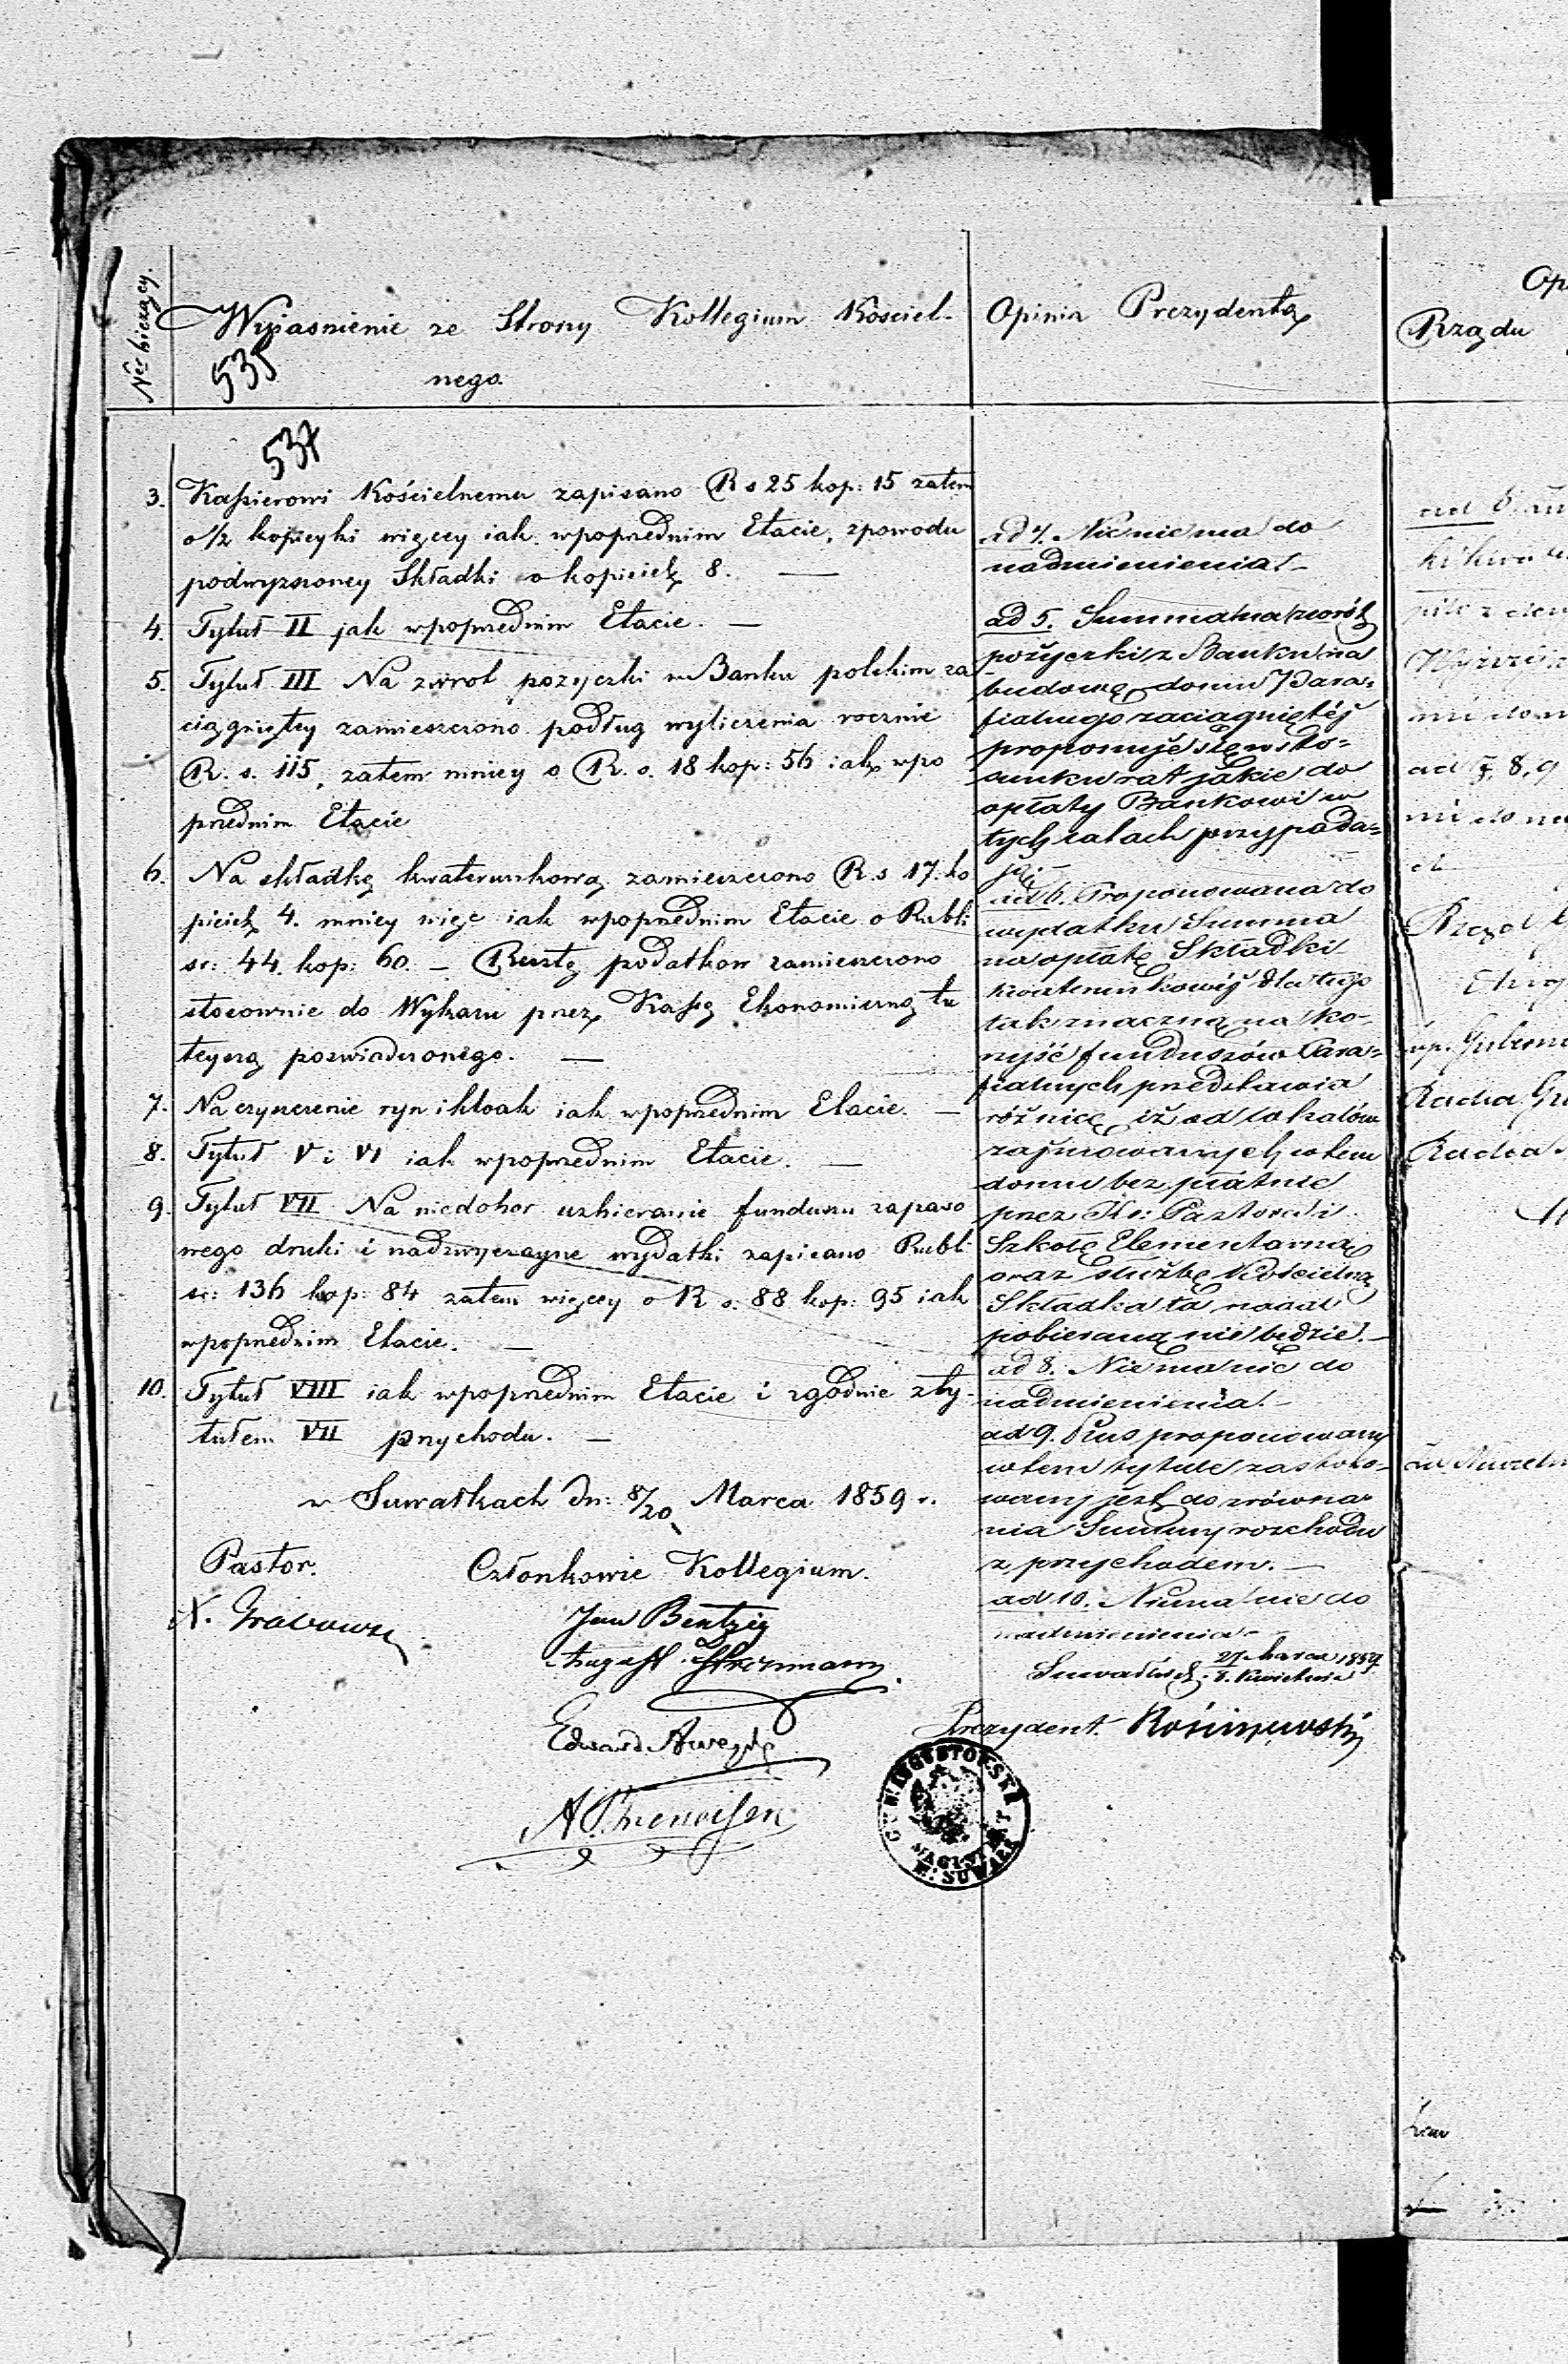 Ner bieżący.
Wyiasnienie ze Strony Kollegium Kościel-
nego.
535
537
3. Kassierowi Kościelnemu zapisano R s 25 kop: 15 zatem
o 1/2 kopieyki więcey iak wpoprzednim Etacie, zpowodu
podwyższoney Składki o kopieiek 8. —
4. Tytuł II jak wpoprzednim Etacie. —
5. Tytuł III Na zwrot pożyczki w Banku polskim za
ciągniętey zamieszczono podług wyliczenia rocznie
R. s. 115, zatem mniey o R. s. 18 kop: 56 iak wpo
przednim Etacie
6. Na składkę kwaterunkową zamieszczono R. s 17. ko
pieiek 4. mniey więc iak wpoprzednim Etacie o Rubli
sr: 44. kop: 60. — Resztę podatkow zamieszczono
stosownie do Wykazu przez Kassę Ekonomiczną tu
teyszą poświadczonego. —
7. Na czyszczenie ryn i kloak iak wpoprzednim Etacie. —
8. Tytuł V i VI iak wpoprzednim Etacie. —
9. Tytuł VII Na niedobor uzbieranie funduszu zapaso
wego druki i nadzwyczayne wydatki zapisano Rubli
sr: 136 kop: 84 zatem więcey o R s. 88 kop: 95 iak
wpoprzednim Etacie. —
10. Tytuł VIII iak wpoprzednim Etacie i zgodnie zty-
tułem VII przychodu. —
w Suwałkach dn: 8/20 Marca 1859 r.
Pastor.
Członkowie Kollegium.
Jan Bentzig
August
Edward
Opinia Prezydenta
ad 4. Nic niema do
nadmienienia. —
ad 5. Summa na zwrót
pożyczki z Banku na
budowę domu Para=
fialnego zaciągniętéj
proponuje się w sto=
sunku rat jakie do
opłaty Bankowi w
tych latach przypada=
ją.
ad 6. Proponowana do
wydatku Summa
na opłatę Składki
kwaterunkowéj dla tego
tak znaczną na ko-
rzyść funduszów Para=
fialnych przedstawia
różnicę, iż od lokalów
zajmowanych w tem
domu bezpłatnie
przez Xs: Pastora i
Szkołę Elementarną
oraz służbę Kościelną
Składka ta nadal
pobieraną nie będzie. —
ad 8. Niema nic do
nadmienienia. —
ad 9. Plus proponowany
w tem tytule zastoso-
wany jest do zrówna-
nia Summy rozchodu
z przychodem. —
ad 10. Niema nic do
nadmienienia. —
Suwałki d. 27 Marca / 8. Kwietnia 1859
Prezydent.
MAGISTRAT
M. SUWAŁK
Op
Rządu
ad 7, 8, 9
Rząd
Radca
Radca